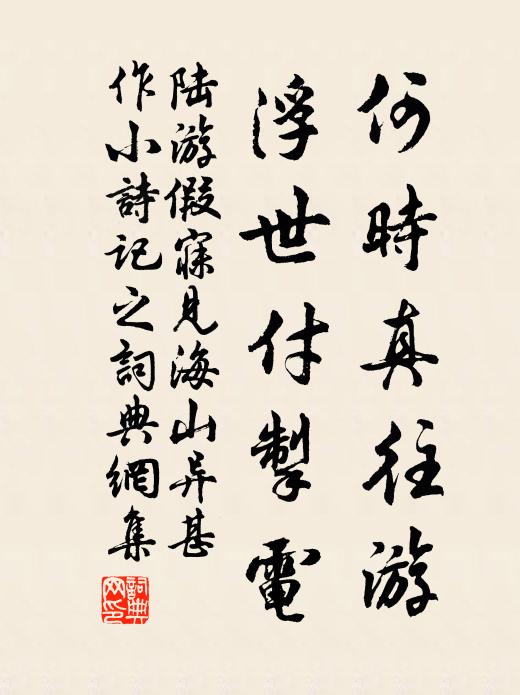 何時真往游
浮世付掣電
陆游假寐見海山异甚
作小詩記之詞典網集
詞典網印